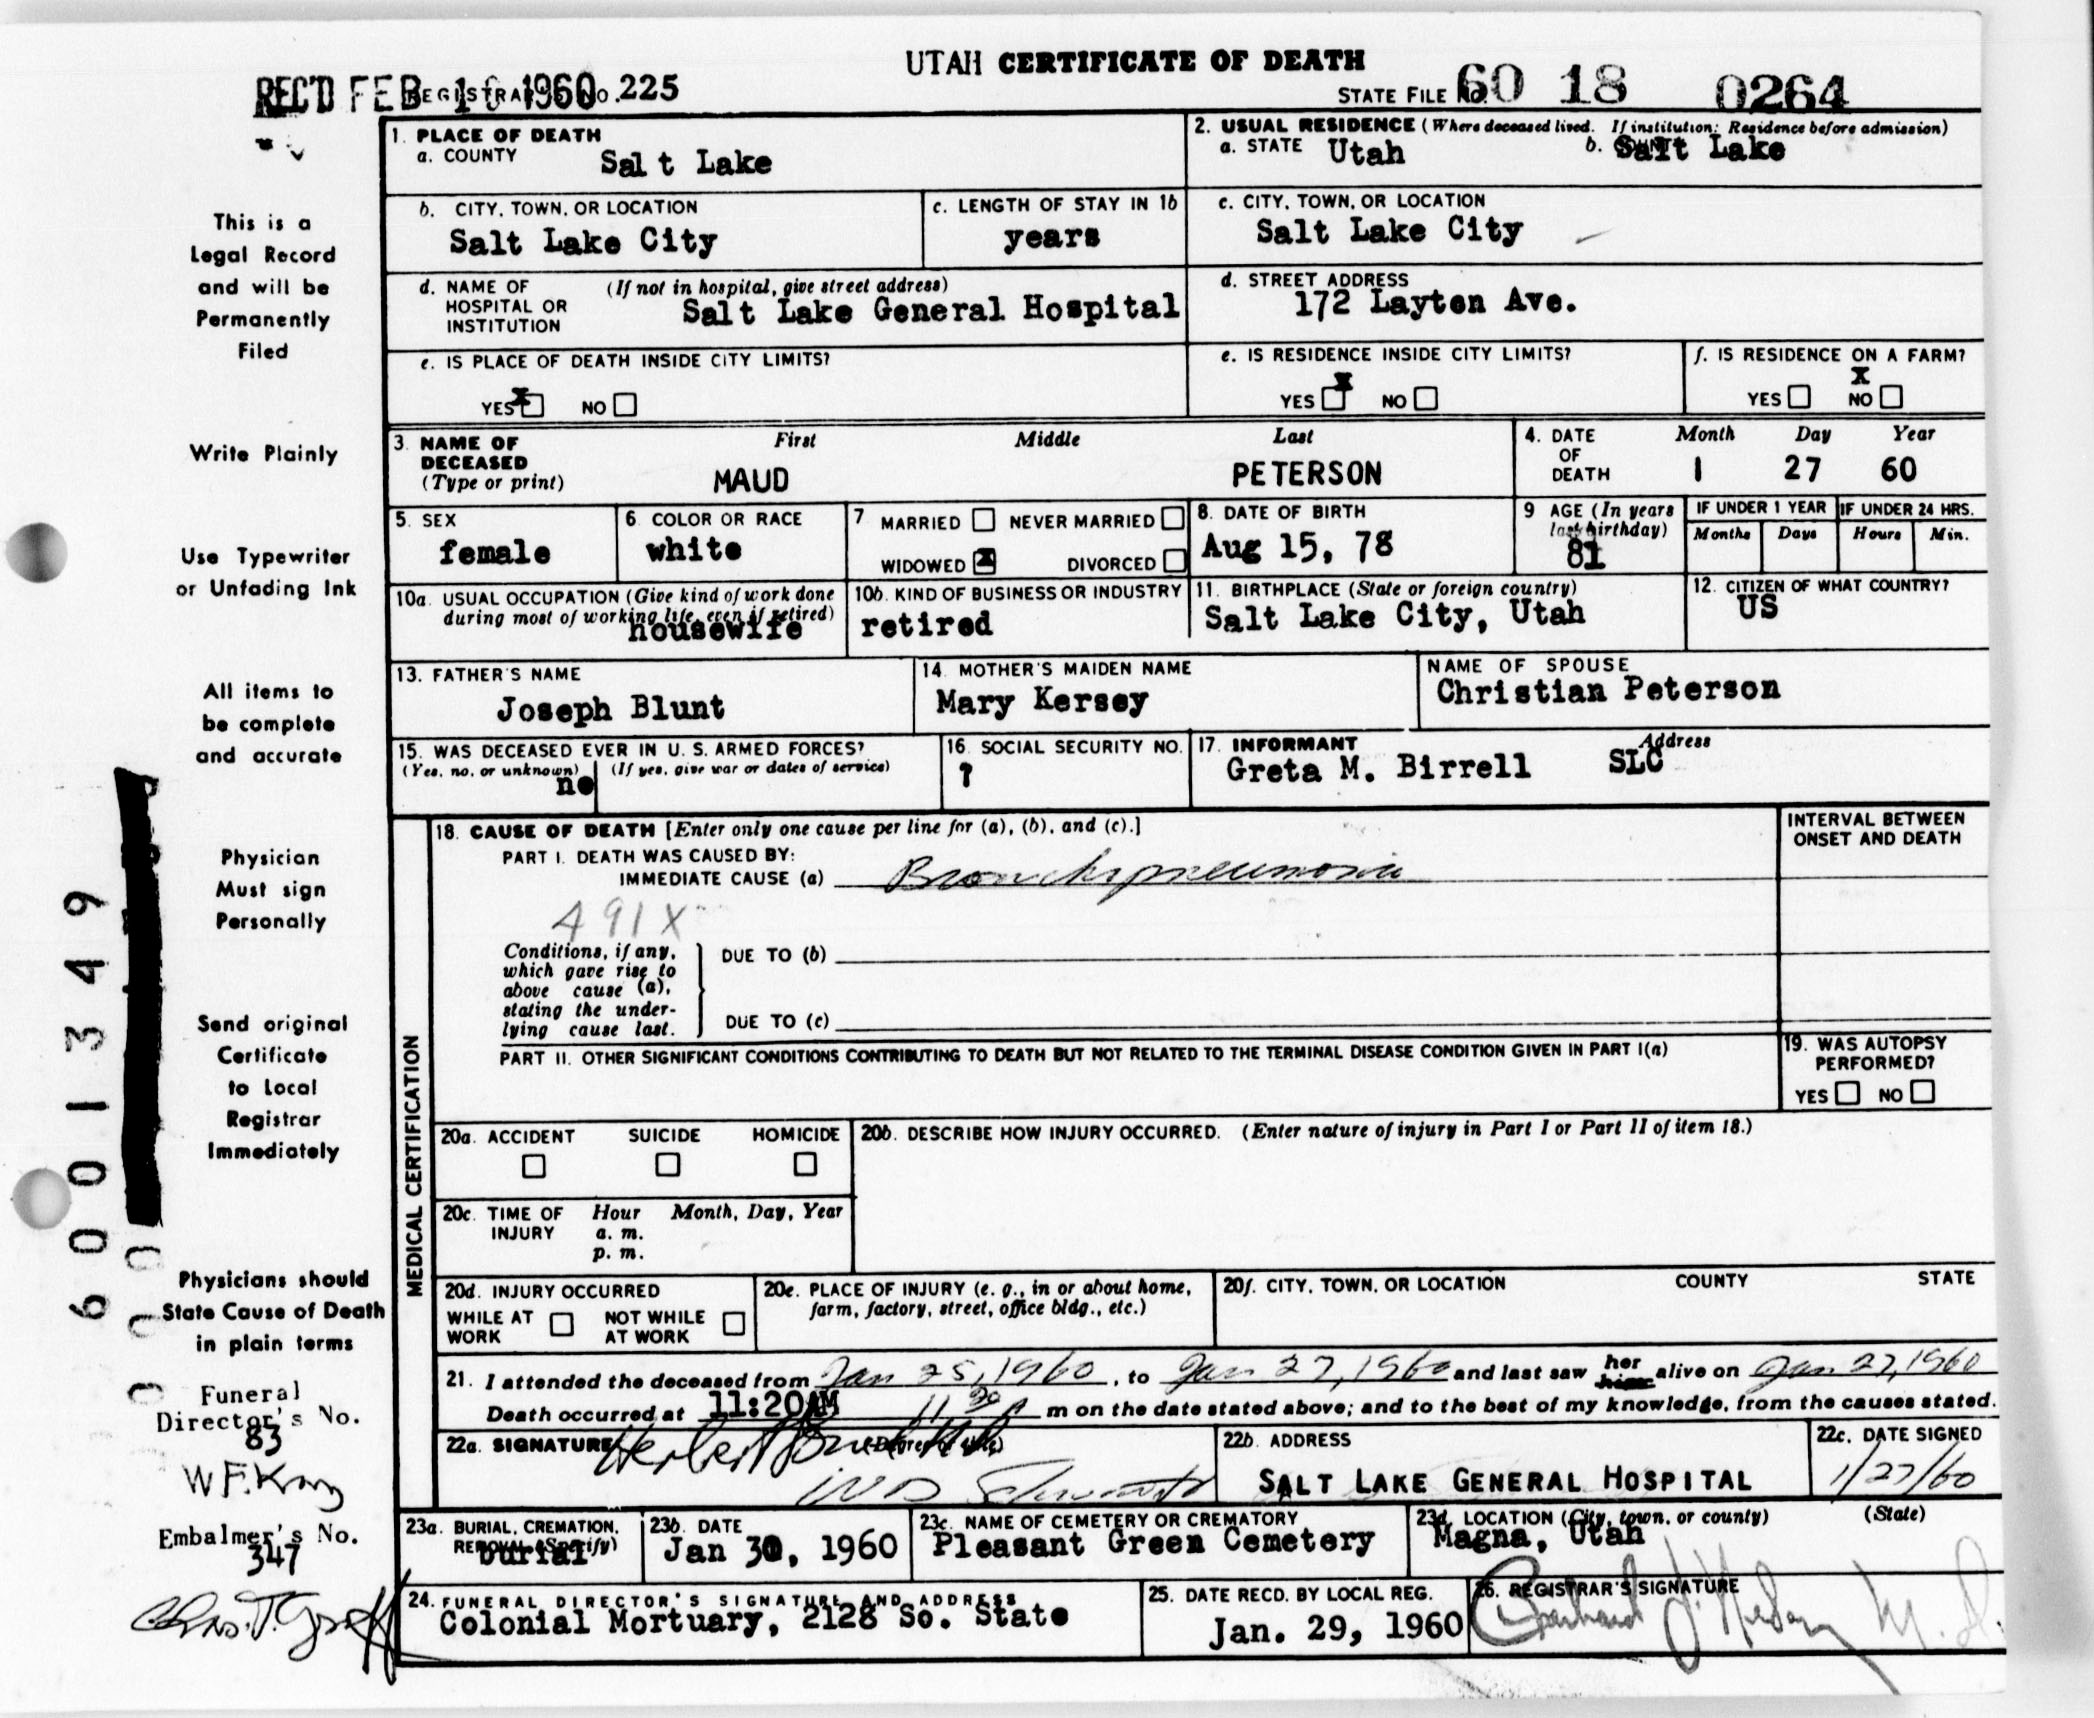 UTAH CERTIFICATE OF DEATH
REC'D FEB 1960 REGISTRAR'S NO. 225
STATE FILE NO. 60 18 0264
This is a
Legal Record
and will be
Permanently
Filed
Write Plainly
Use Typewriter
or Unfading Ink
All items to
be complete
and accurate
Physician
Must sign
Personally
Send original
Certificate
to Local
Registrar
Immediately
Physicians should
State Cause of Death
in plain terms
Funeral
Director's No.
83
W F. Kay
Embalmer's No.
347
6001349
1. PLACE OF DEATH
a. COUNTY Salt Lake
2. USUAL RESIDENCE (Where deceased lived. If institution: Residence before admission)
a. STATE Utah b. COUNTY Salt Lake
b. CITY, TOWN, OR LOCATION
Salt Lake City
c. LENGTH OF STAY IN 1b
years
c. CITY, TOWN, OR LOCATION
Salt Lake City
d. NAME OF HOSPITAL OR INSTITUTION (If not in hospital, give street address)
Salt Lake General Hospital
d. STREET ADDRESS
172 Layton Ave.
e. IS PLACE OF DEATH INSIDE CITY LIMITS?
YES X NO
e. IS RESIDENCE INSIDE CITY LIMITS?
YES X NO
f. IS RESIDENCE ON A FARM?
YES NO X
3. NAME OF DECEASED (Type or print) First Middle Last
MAUD PETERSON
4. DATE OF DEATH Month Day Year
1 27 60
5. SEX
female
6. COLOR OR RACE
white
7 MARRIED NEVER MARRIED
WIDOWED X DIVORCED
8. DATE OF BIRTH
Aug 15, 78
9 AGE (In years last birthday)
81
IF UNDER 1 YEAR
Months Days
IF UNDER 24 HRS.
Hours Min.
10a. USUAL OCCUPATION (Give kind of work done
during most of working life, even if retired)
housewife
10b. KIND OF BUSINESS OR INDUSTRY
retired
11. BIRTHPLACE (State or foreign country)
Salt Lake City, Utah
12. CITIZEN OF WHAT COUNTRY?
US
13. FATHER'S NAME
Joseph Blunt
14. MOTHER'S MAIDEN NAME
Mary Kersey
NAME OF SPOUSE
Christian Peterson
15. WAS DECEASED EVER IN U. S. ARMED FORCES?
(Yes, no, or unknown) (If yes, give war or dates of service)
no
16. SOCIAL SECURITY NO.
?
17. INFORMANT Address
Greta M. Birrell SLC
MEDICAL CERTIFICATION
18. CAUSE OF DEATH [Enter only one cause per line for (a), (b), and (c).]
INTERVAL BETWEEN
ONSET AND DEATH
PART I. DEATH WAS CAUSED BY:
IMMEDIATE CAUSE (a) Bronchopneumonia
491X
Conditions, if any,
which gave rise to
above cause (a),
stating the under-
lying cause last.
DUE TO (b)
DUE TO (c)
PART II. OTHER SIGNIFICANT CONDITIONS CONTRIBUTING TO DEATH BUT NOT RELATED TO THE TERMINAL DISEASE CONDITION GIVEN IN PART I(a)
19. WAS AUTOPSY
PERFORMED?
YES NO
20a. ACCIDENT SUICIDE HOMICIDE
20b. DESCRIBE HOW INJURY OCCURRED. (Enter nature of injury in Part I or Part II of item 18.)
20c. TIME OF INJURY Hour Month, Day, Year
a. m.
p. m.
20d. INJURY OCCURRED
WHILE AT WORK NOT WHILE AT WORK
20e. PLACE OF INJURY (e. g., in or about home,
farm, factory, street, office bldg., etc.)
20f. CITY, TOWN, OR LOCATION COUNTY STATE
21. I attended the deceased from Jan 25, 1960, to Jan 27, 1960 and last saw her him alive on Jan 27, 1960
Death occurred at 11:20AM 11 20 A m on the date stated above; and to the best of my knowledge, from the causes stated.
22a. SIGNATURE (Degree or title)
Herbert
22b. ADDRESS
SALT LAKE GENERAL HOSPITAL
22c. DATE SIGNED
1/27/60
23a. BURIAL, CREMATION,
REMOVAL (Specify)
burial
23b. DATE
Jan 30, 1960
23c. NAME OF CEMETERY OR CREMATORY
Pleasant Green Cemetery
23d. LOCATION (City, town, or county) (State)
Magna, Utah
24. FUNERAL DIRECTOR'S SIGNATURE AND ADDRESS
Colonial Mortuary, 2128 So. State
25. DATE RECD. BY LOCAL REG.
Jan. 29, 1960
26. REGISTRAR'S SIGNATURE
M. D.